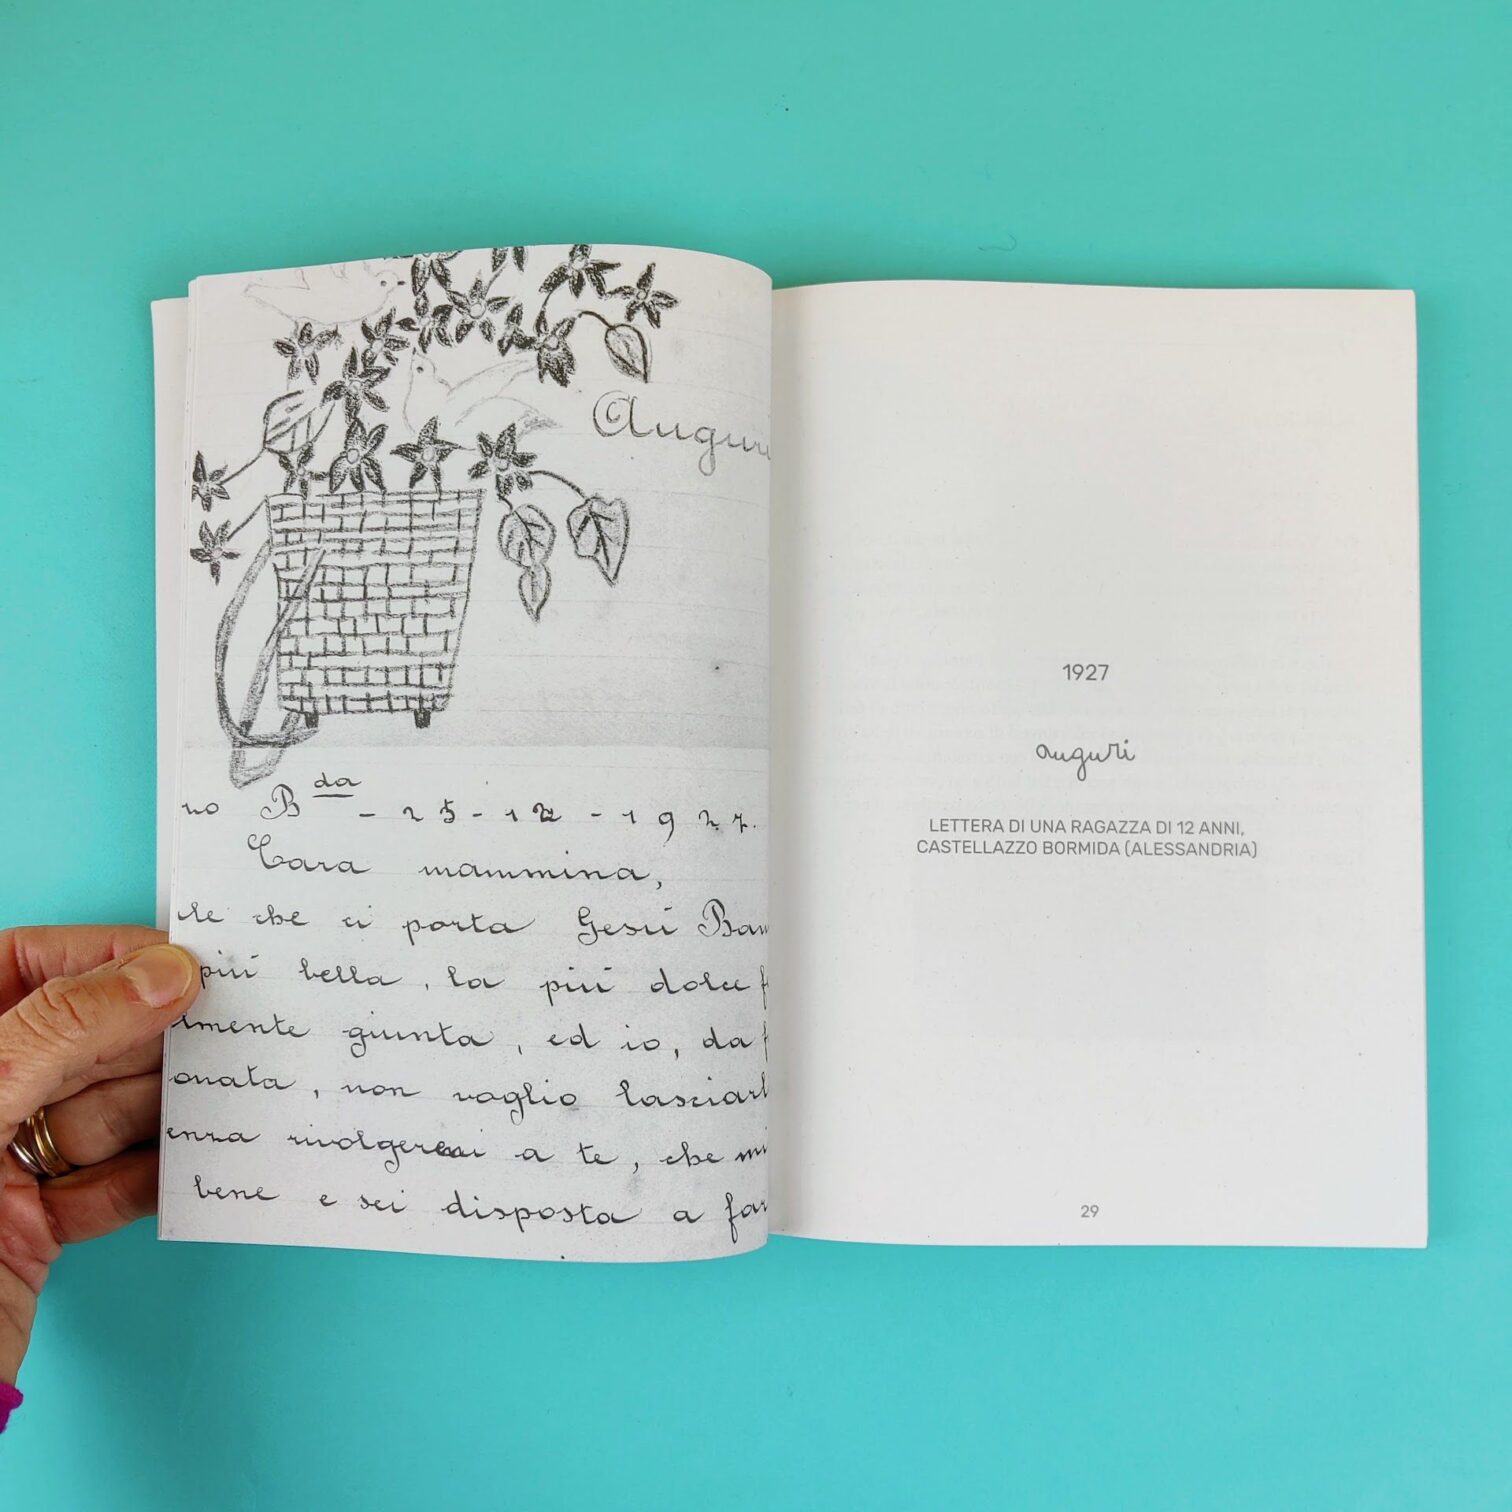 Auguri
no B da - 25 - 12 - 1927.
Cara mammina,
le che ci porta Gesù Bam
più bella, la più dolce f
lmente giunta, ed io, da f
onata, non voglio lasciarl
enza rivolgermi a te, che mi
bene e sei disposta a far
1927
auguri
LETTERA DI UNA RAGAZZA DI 12 ANNI,
CASTELLAZZO BORMIDA (ALESSANDRIA)
29